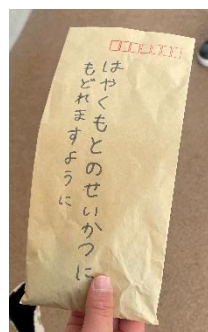 はやくもとのせいかつに
もどれますように